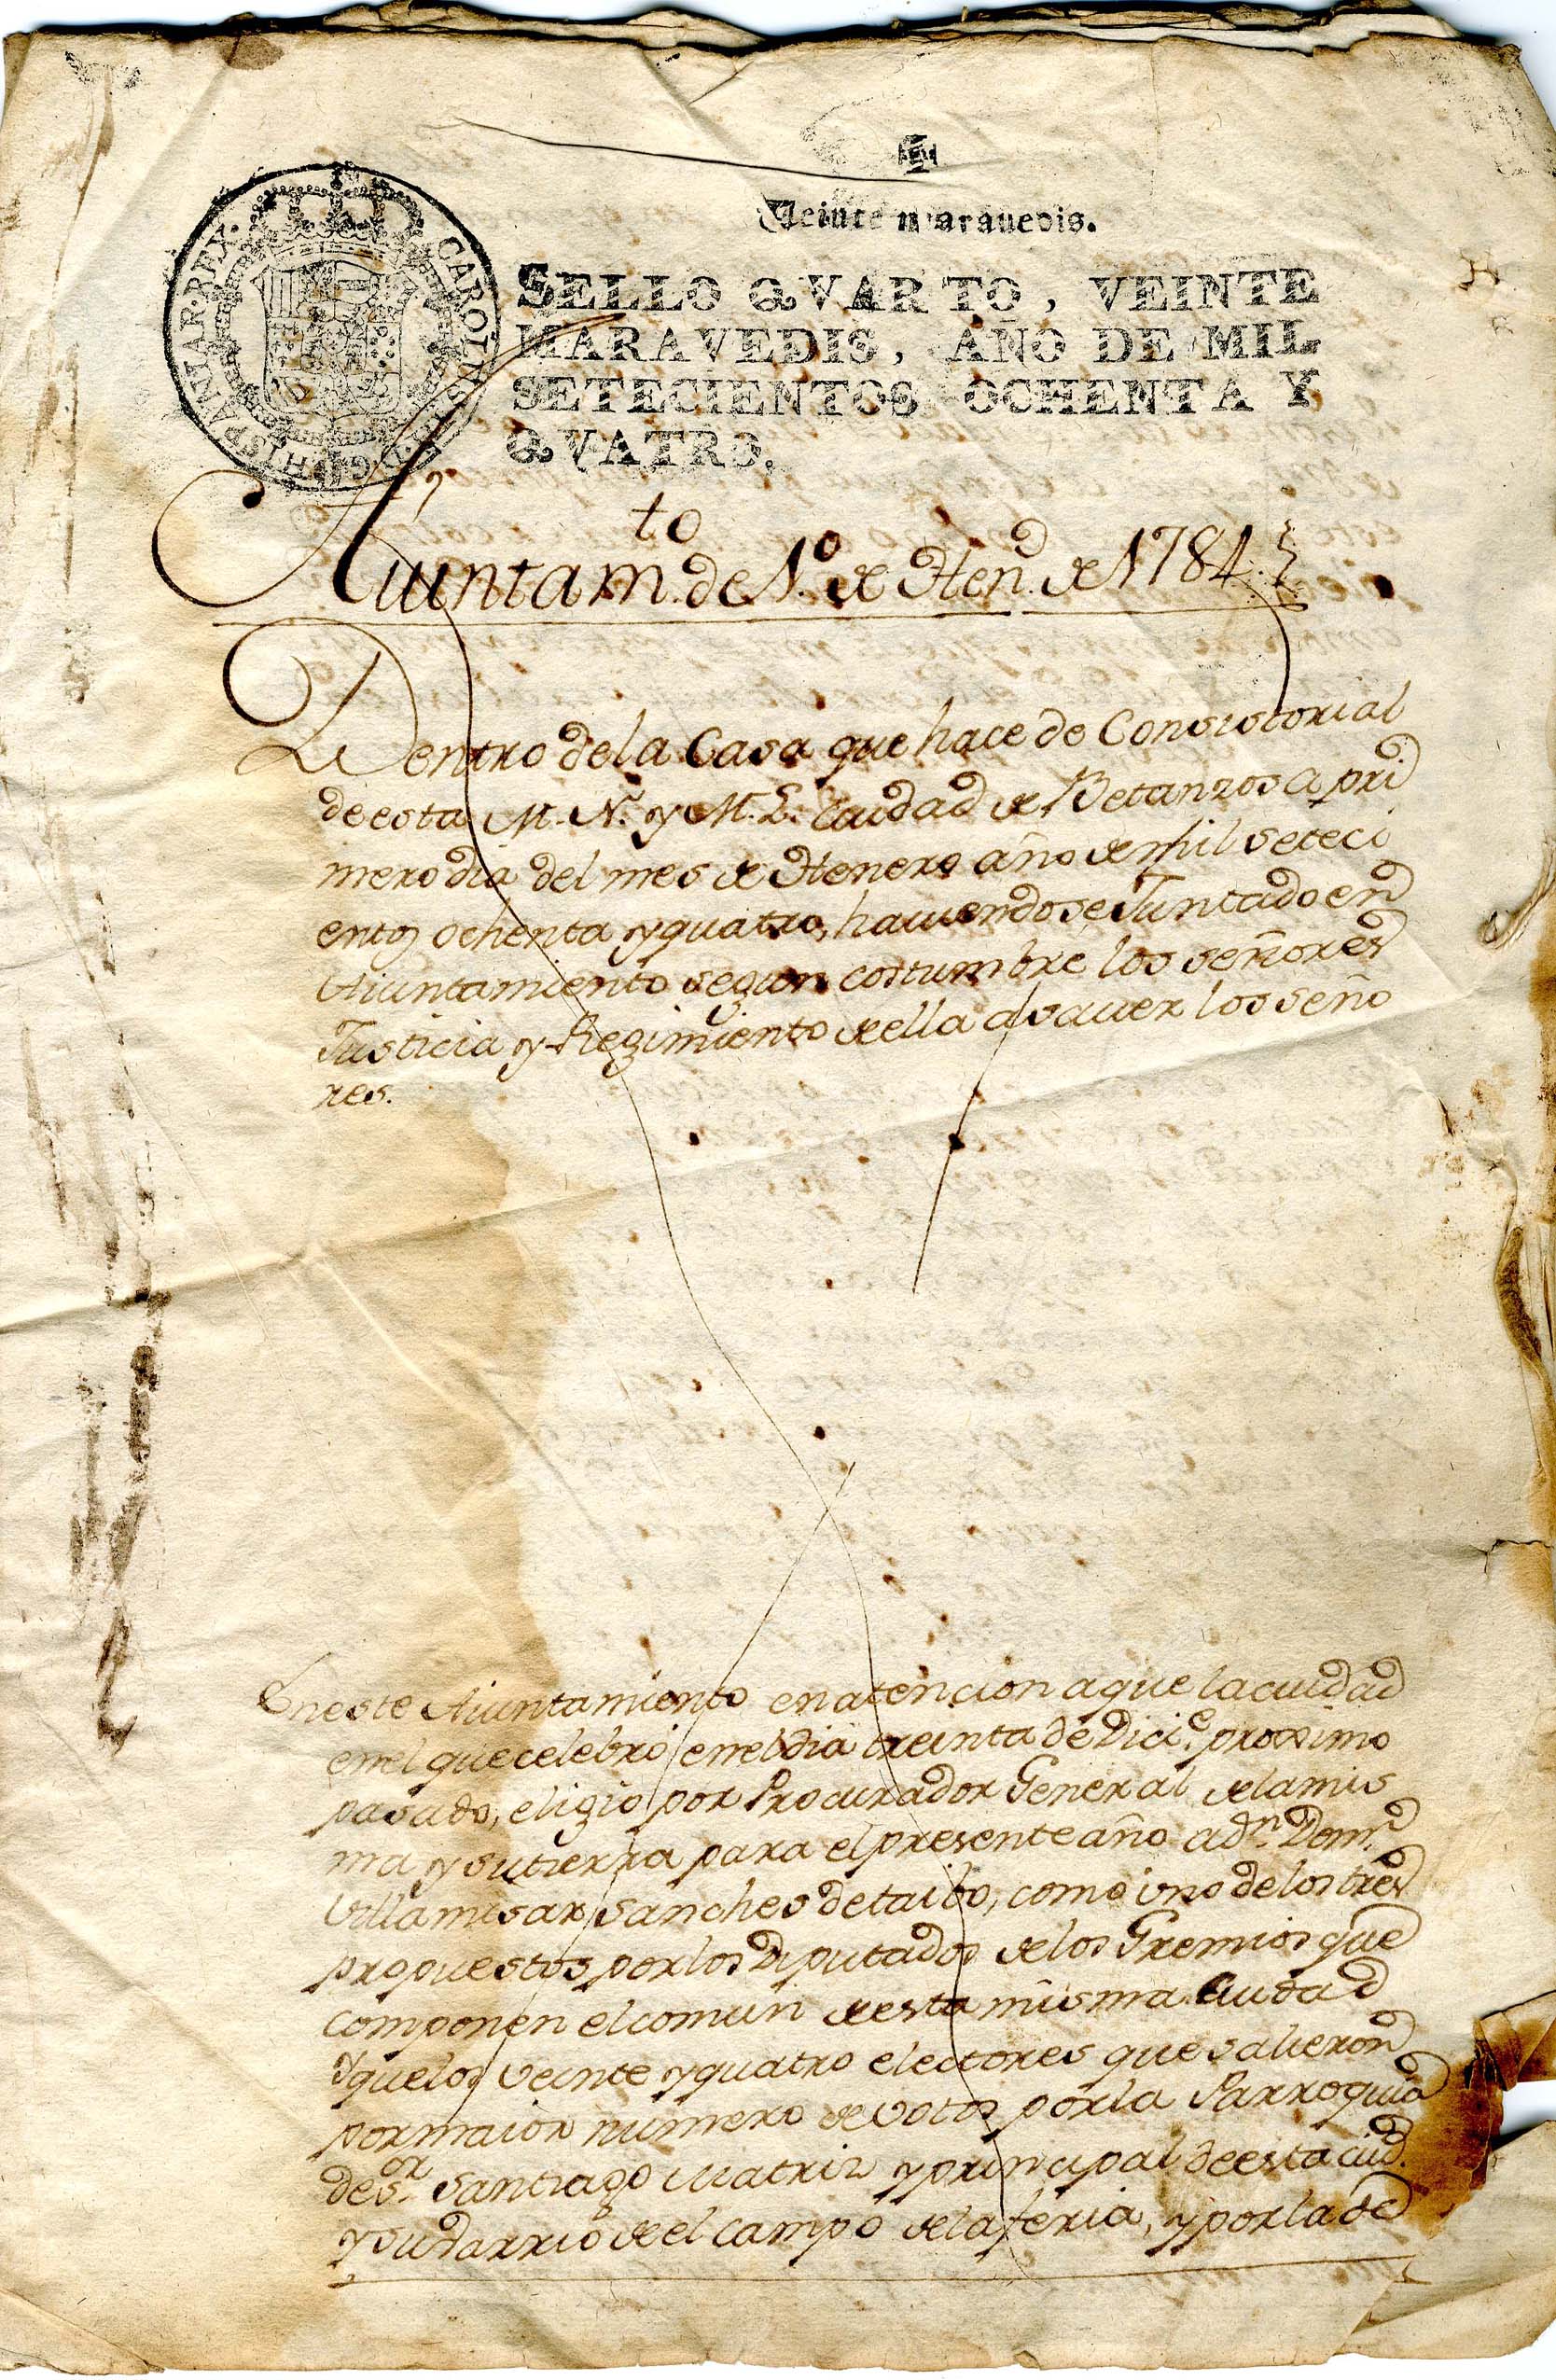 Veinte marauedis.
CAROLUS III D G HISPANIAR REX
SELLO QVARTO, VEINTE
MARAVEDIS, AÑO DE MIL
SETECIENTOS OCHENTA Y
QVATRO.
Aiuntam.to de 1.º de Hen.º de 1784.
Dentro de la Casa que hace de Consistorial
de esta M. N. y M. L. Ciudad de Betanzos a pri
mero dia del mes de Henero año de mil seteci
entos ochenta y quatro, hauiendose Juntado en
Aiuntamiento segun costumbre los señores
Justicia y Regimiento de ella a sauer los seño
res.
En este Aiuntamiento en atencion a que la ciudad
en el que celebró en el dia treinta de Dici.e proximo
pasado, eligió por Procurador General de la mis
ma y su tierra para el presente año a d.n Dom.º
Villamisar Sanches de taibo, como vno de los tres
propuestos por los Diputados de los Gremios que
componen el comun de esta misma Ciudad
Y que los veinte y quatro electores que salieron
por maior numero de votos por la Parroquia
de S.or Santiago Matriz y principal de esta ciud.
y su varrio de el campo de la feria, y por la de